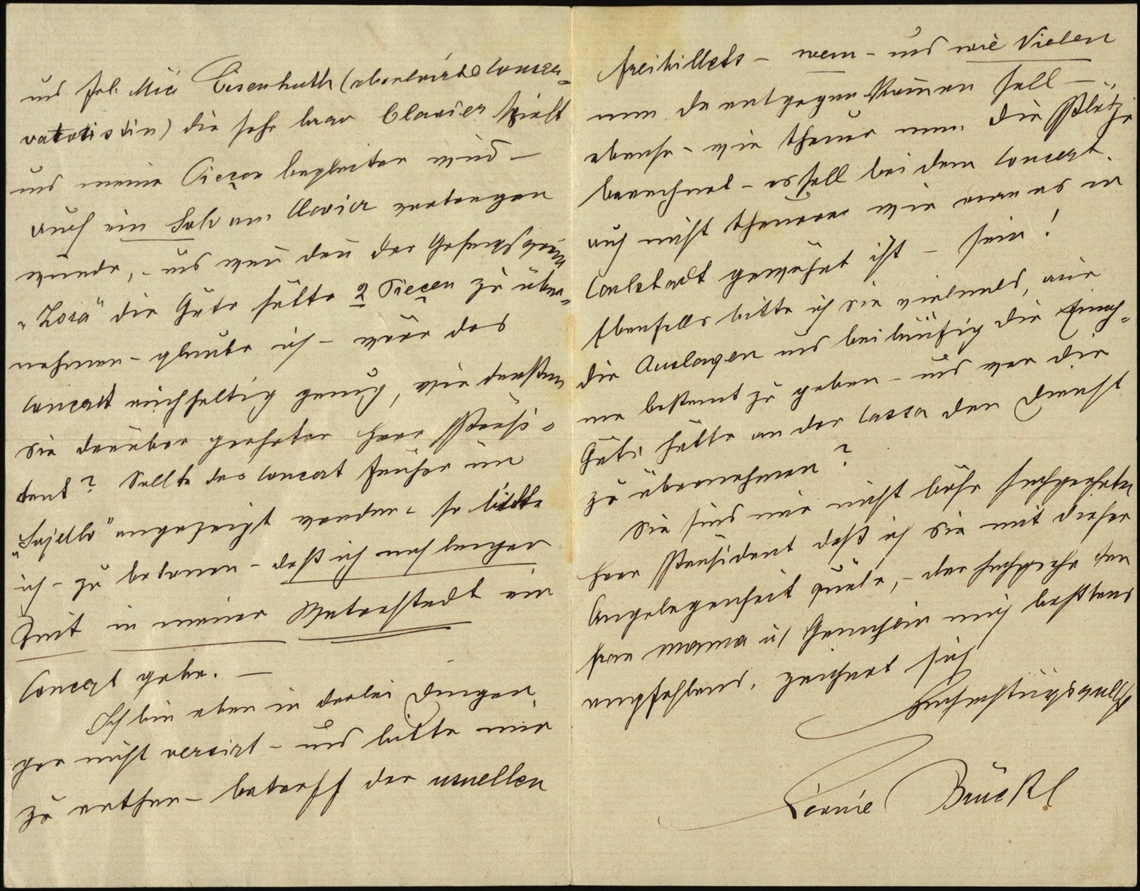 und Frl. Mici Eisenhuth (absolvirte Conser-
vatoristin) die sehr brav Clavier spielt
und meine Piecen begleiten wird –
auch ein Solo am Clavier vortragen
würde, – und wen dan der Gesangsverein
"Zora" die Güte hätte 2 Piecen zu über-
nehmen – glaube ich – wäre das
Concert reichhaltig genug, wie denken
Sie darüber geehrter Herr Präsi-
dent? Sollte das Concert früher im
"Svjetlo" angezeigt werden – so bitte
ich – zu betonen – daß ich nach langer
Zeit in meiner Vaterstadt ein
Concert gebe. –
Ich bin eben in derlei Dingen
gar nicht versirt – und bitte mir
zu rathen – betreff der usuellen
Freibillets – wem – und wie Vielen
man da entgegen kommen soll –
ebenso – wie theuer man die Plätze
berechnet – es soll bei dem Concert
auch nicht theuerer wie man es in
Carlstadt gewöhnt ist – sein!
Ebenfalls bitte ich Sie vielmals, mir
die Auslagen und beiläufig die Einah-
me bekannt zu geben – und wer die
Güte hätte an der Cassa den Dienst
zu übernehmen?
Sie sind mir nicht böse hochgeehrter
Herr Präsident daß ich Sie mit dieser
Angelegenheit quäle, – der hochgeehrten
Frau Mama u. Gemahlin mich bestens
empfehlend, zeichnet sich
Hochachtungsvollst
Brückl